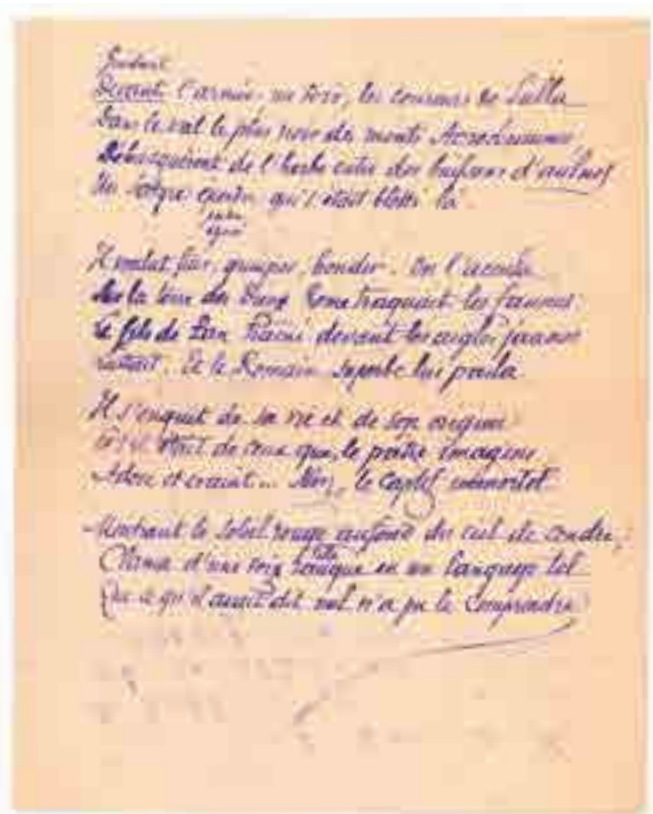 Devant l'armée, un soir, les coureurs de Sulla
Dans le val le plus noir des monts
de l'herbe entre des buissons d'aulnes
Un qu'était blotti là
Il voulut fuir, grimper, bondir. On l'accula
des Dieux Rome traquait les faunes
Le fils de Pan devant les aigles jaunes
Et le Romain superbe lui parla
Il s'enquit de sa vie et de son origine
était de ceux que le poëte imagine
Adore et craint... le Captif immortel
Montrant le soleil rouge au fond du ciel de cendre,
Clama d'une voix rauque en un langage tel
Que ce qu'il avait dit nul n'a pu le comprendre